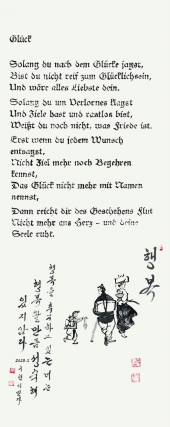 Glück
Solang du nach dem Glücke jagst,
Bist du nicht reif zum Glücklichsein,
Und wäre alles Liebste dein.
Solang du um Verlornes klagst
Und Ziele hast und rastlos bist,
Weißt du noch nicht, was Friede ist.
Erst wenn du jedem Wunsch
entsagst,
Nicht Ziel mehr noch Begehren
kennst,
Das Glück nicht mehr mit Namen
nennst,
Dann reicht dir des Geschehens Flut
Nicht mehr ans Herz - und deine
Seele ruht.
행복
행복을 추구하고 있는 너는
행복할 만큼 성숙해
있지 않다